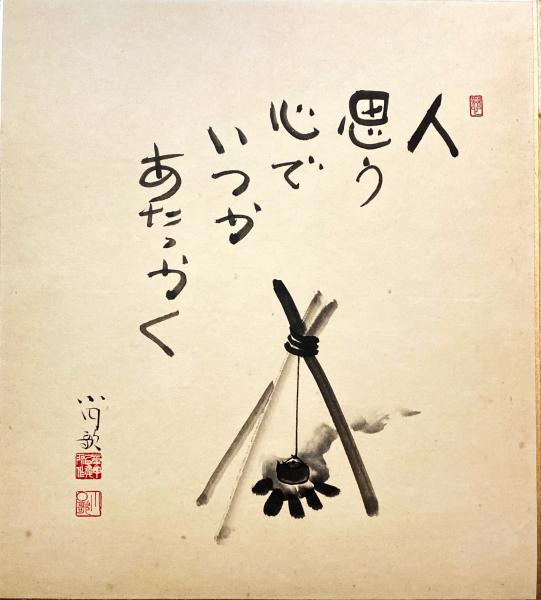 人
思う
心で
いつか
あたっかく